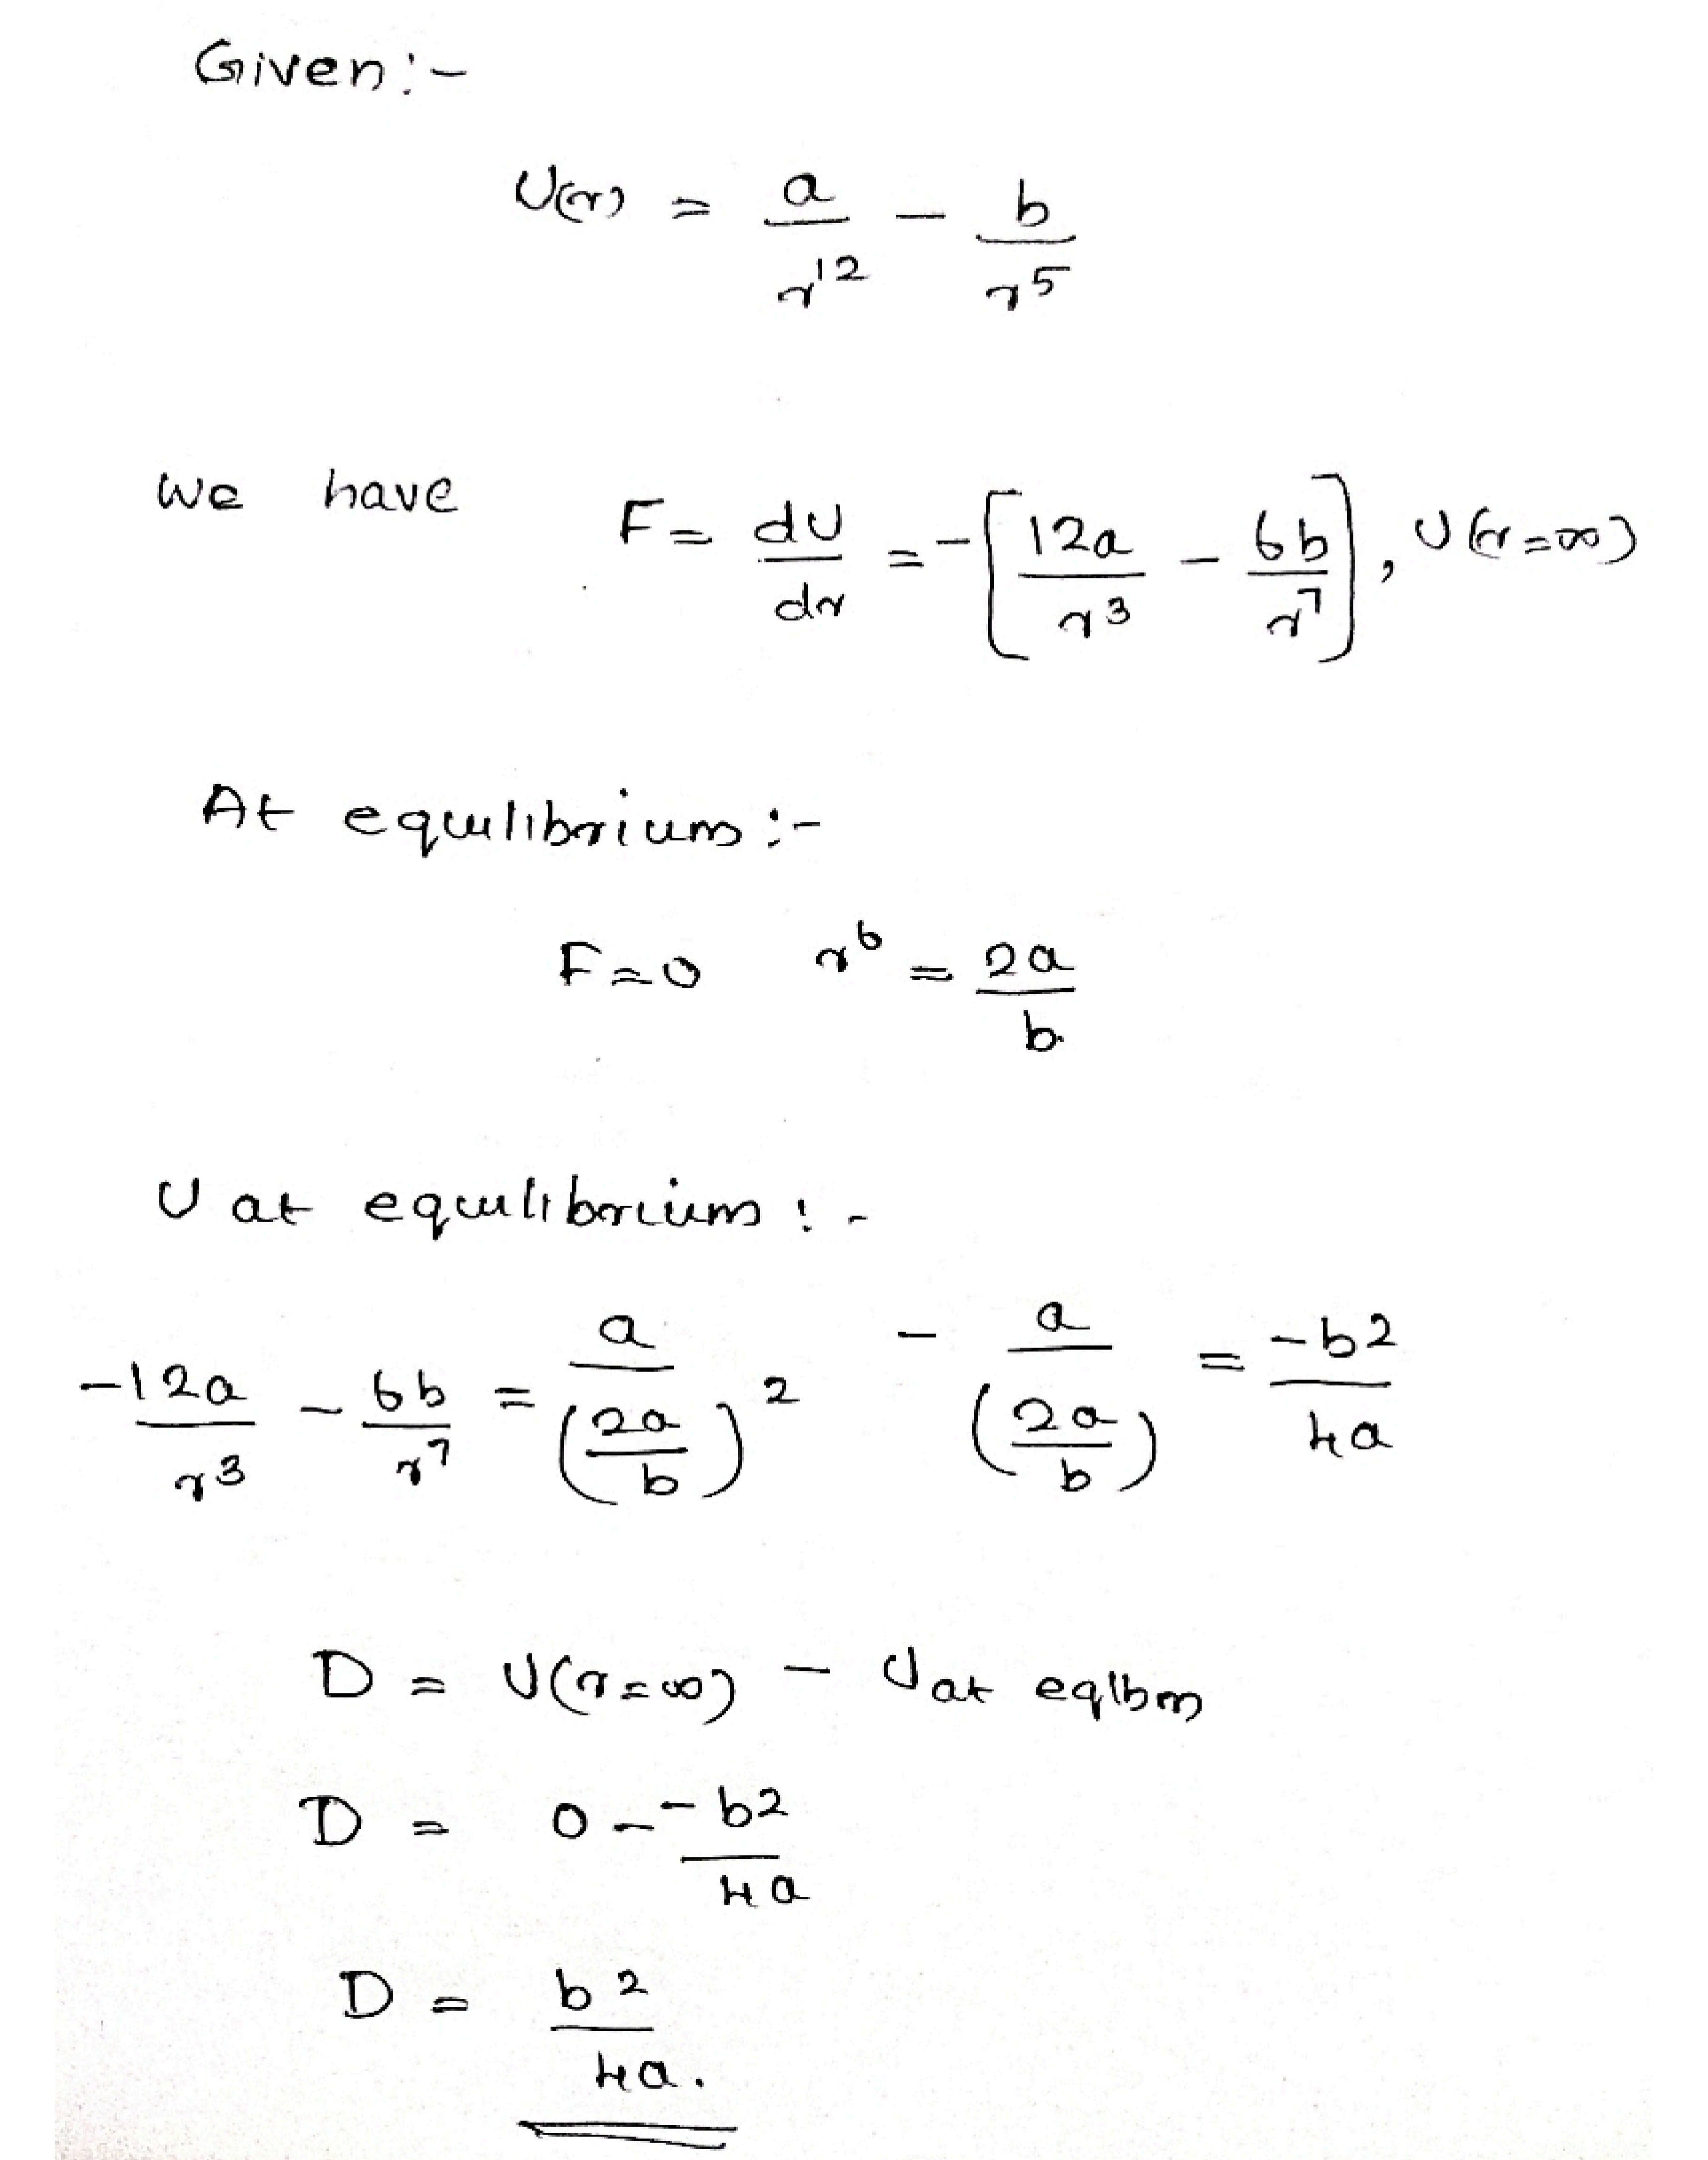 Given:-
U(r) = a/r^12 - b/r^5
We have F = dU/dr = -[12a/r^3 - 6b/r^7], U(r=∞)
At equilibrium:-
F=0 r^6 = 2a/b
U at equilibrium:-
-12a/r^3 - 6b/r^7 = a/(2a/b)^2 - a/(2a/b) = -b2/4a
D = U(r=∞) - U at eqlbm
D = 0 - -b2/4a
D = b2/4a.